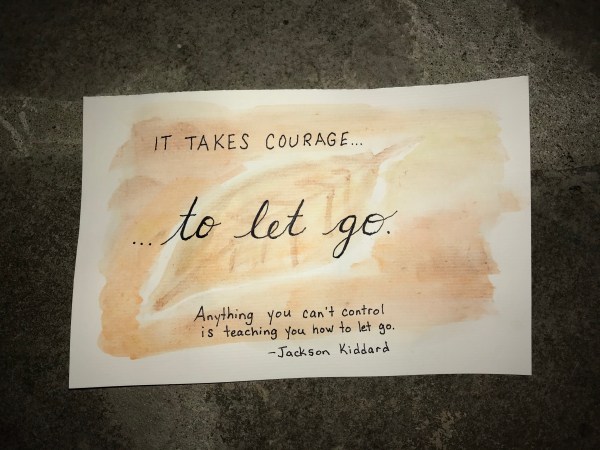 IT TAKES COURAGE...
... to let go.
Anything you can't control
is teaching you how to let go.
-Jackson Kiddard